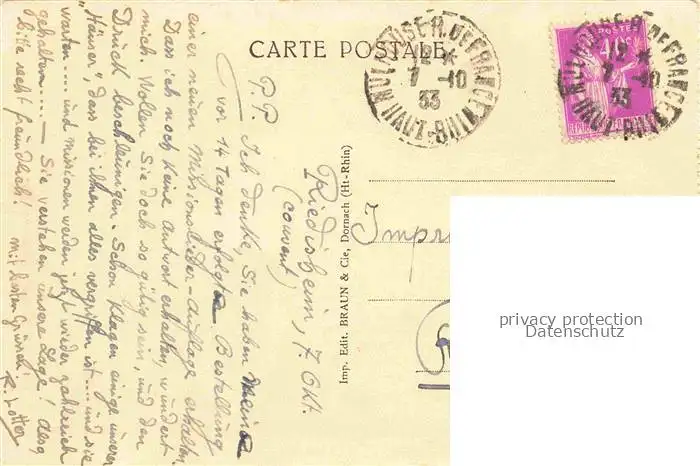 CARTE POSTALE
MULHOUSE R. DE FRANCE
12 *
7 -10
33
HAUT-RHIN
POSTES
MULHOUSE R. DE FRANCE
12 *
7 -10
33
HAUT-RHIN
Imp. Edit. BRAUN & Cie, Dornach (Ht-Rhin)
Impr
Riedisheim, 7. Okt.
(couvent)
P.P.
Ich denke, Sie haben meine
vor 14 Tagen erfolgte Bestellung
einer neuen Missionslieder-Auflage erhalten.
Dass ich noch keine Antwort erhalten, wundert
mich. Wollen Sie doch so gütig sein, und den
Druck beschleunigen. Schon klagen einige unserer
"Häuser", dass bei ihnen alles vergriffen ist.... und sie
warten.... und Missionen werden jetzt wieder zahlreich
gehalten.... – Sie verstehen unsere Lage! also
bitte recht freundlich!
mit besten Grüssen!
R. Lotter
privacy protection
Datenschutz